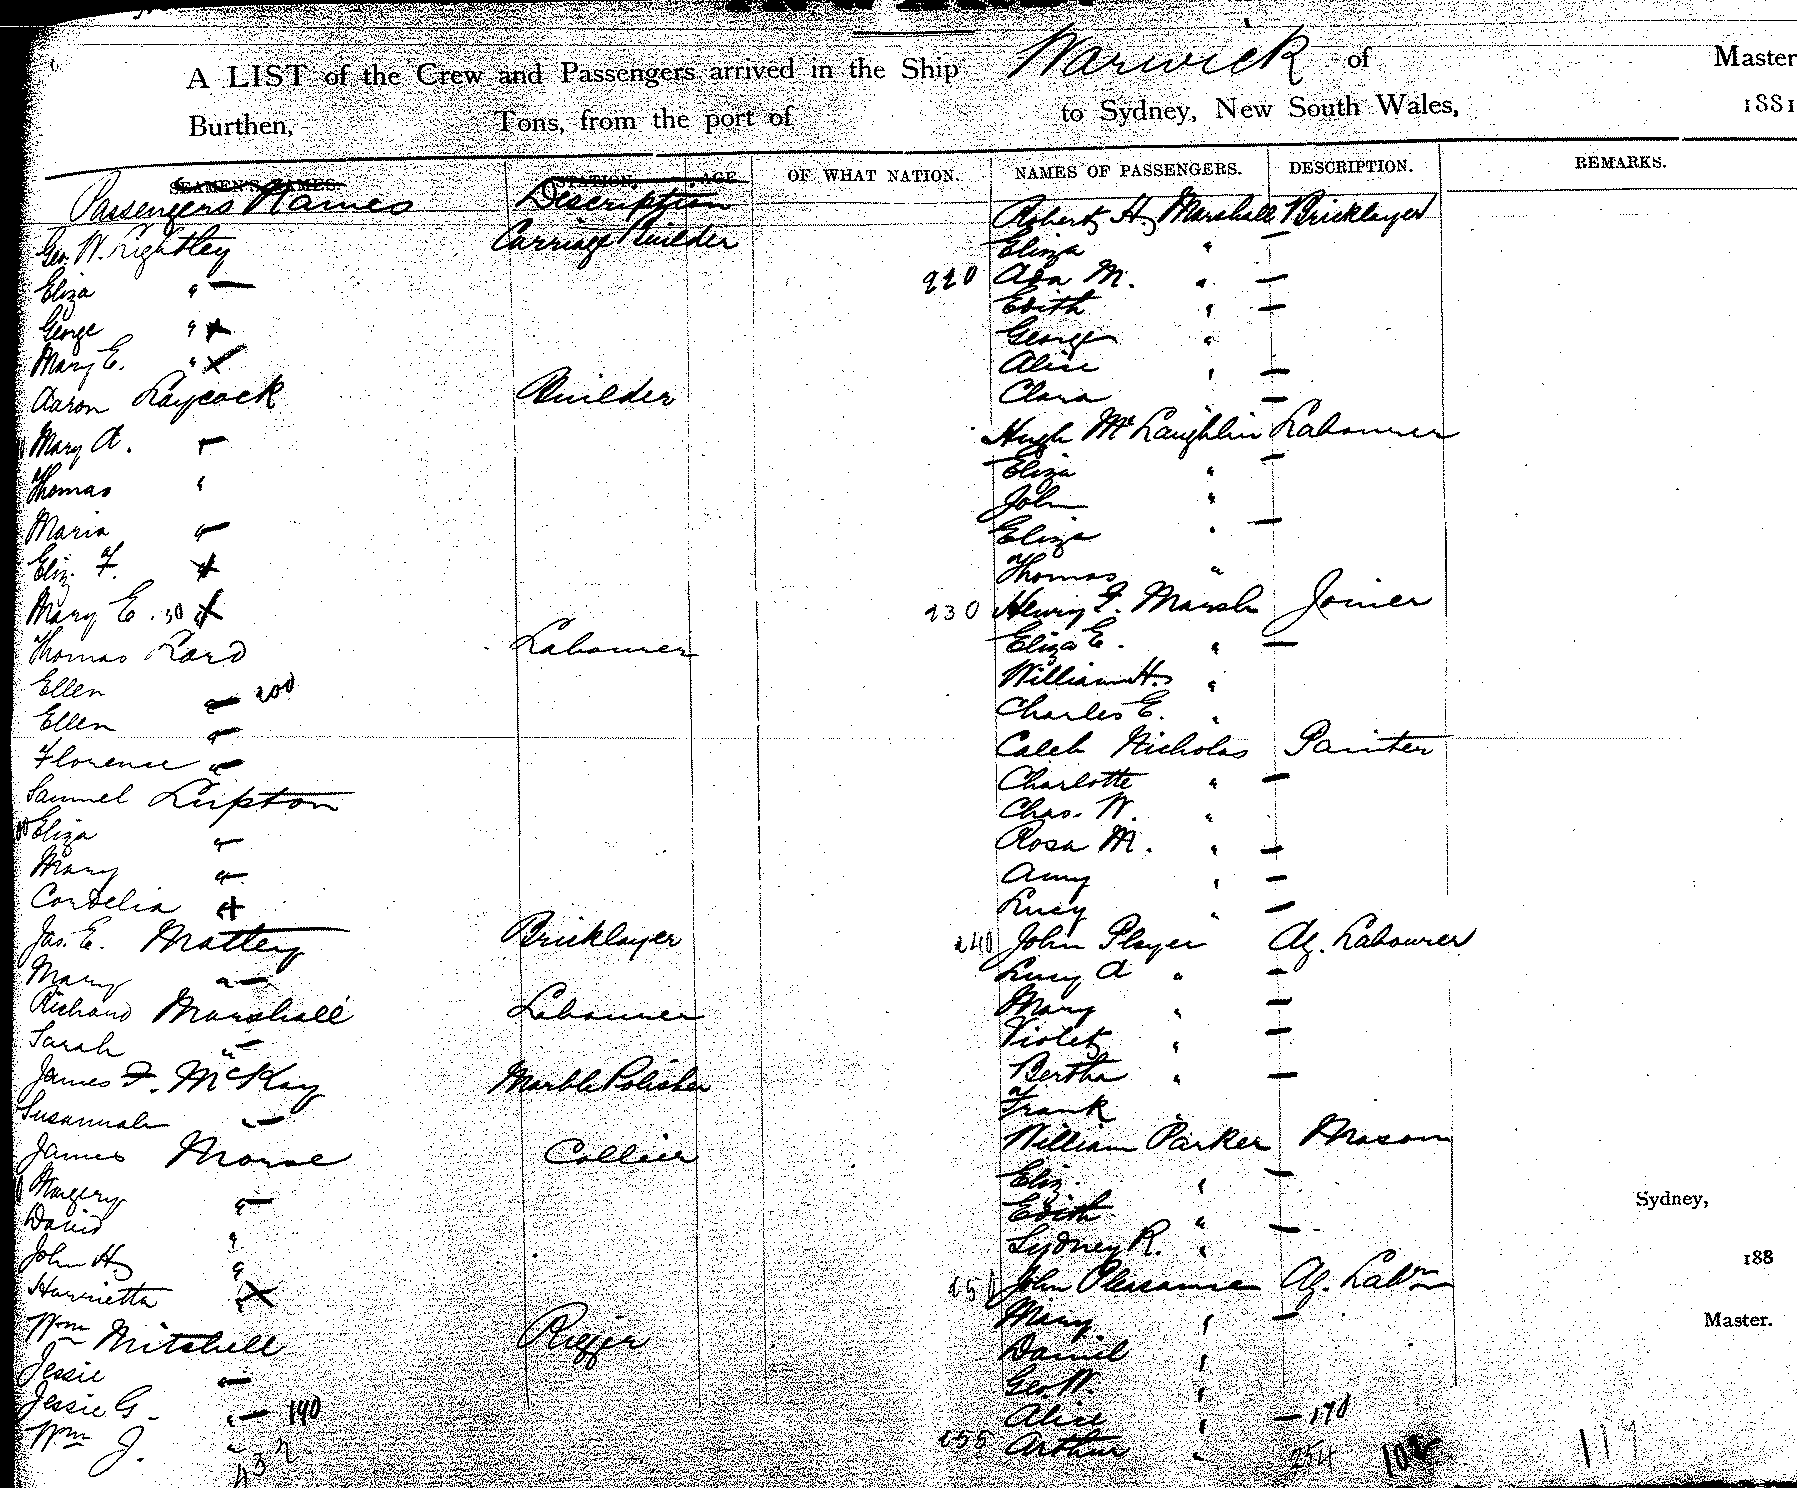 A LIST of the Crew and Passengers arrived in the Ship Warwick of Master
Burthen, Tons, from the port of to Sydney, New South Wales, 1881
SEAMEN'S NAMES. STATION. AGE OF WHAT NATION. NAMES OF PASSENGERS. DESCRIPTION. REMARKS.
Passengers Names Description
Geo. W. Lightley Carriage Builder
Eliza "
George "
Mary E. "
Aaron Laycock Builder
Mary A.
Thomas "
Maria "
Eliz. F.
Mary E. 30
Thomas Lord Labourer
Ellen " 200
Ellen "
Florence "
Samuel Lupton
Eliza "
Mary "
Cordelia
Jas. E. Mattey Bricklayer
Mary "
Richard Marshall Labourer
Sarah "
James F. McKay Marble Polisher
Susannah "
James Morse Collier
Margery "
David "
John H. "
Harrietta
Wm Mitchell Rigger
Jessie "
Jessie G. " 190
Wm J. "
432
Robert H. Marshall Bricklayer
Eliza "
220 Ada M. " —
Edith " —
George "
Alice " —
Clara " —
Hugh McLaughlin Labourer
Eliza " —
John "
Eliza " —
Thomas "
230 Henry F. Marsh Joiner
Eliza E. " —
William H. "
Charles E. "
Caleb Nicholas Painter
Charlotte " —
Chas. W. "
Rosa M. " —
Amy " —
Lucy " —
240 John Player Ag. Labourer
Lucy A " —
Mary " —
Violet " —
Bertha " —
Frank
William Parker Mason
Eliz. " —
Edith " —
Sydney R. "
250 John Pleasance Ag. Labr
Mary " —
Daniel "
Geo W. "
Alice " — 170
255 Arthur "
254 102 117
Sydney,
188
Master.